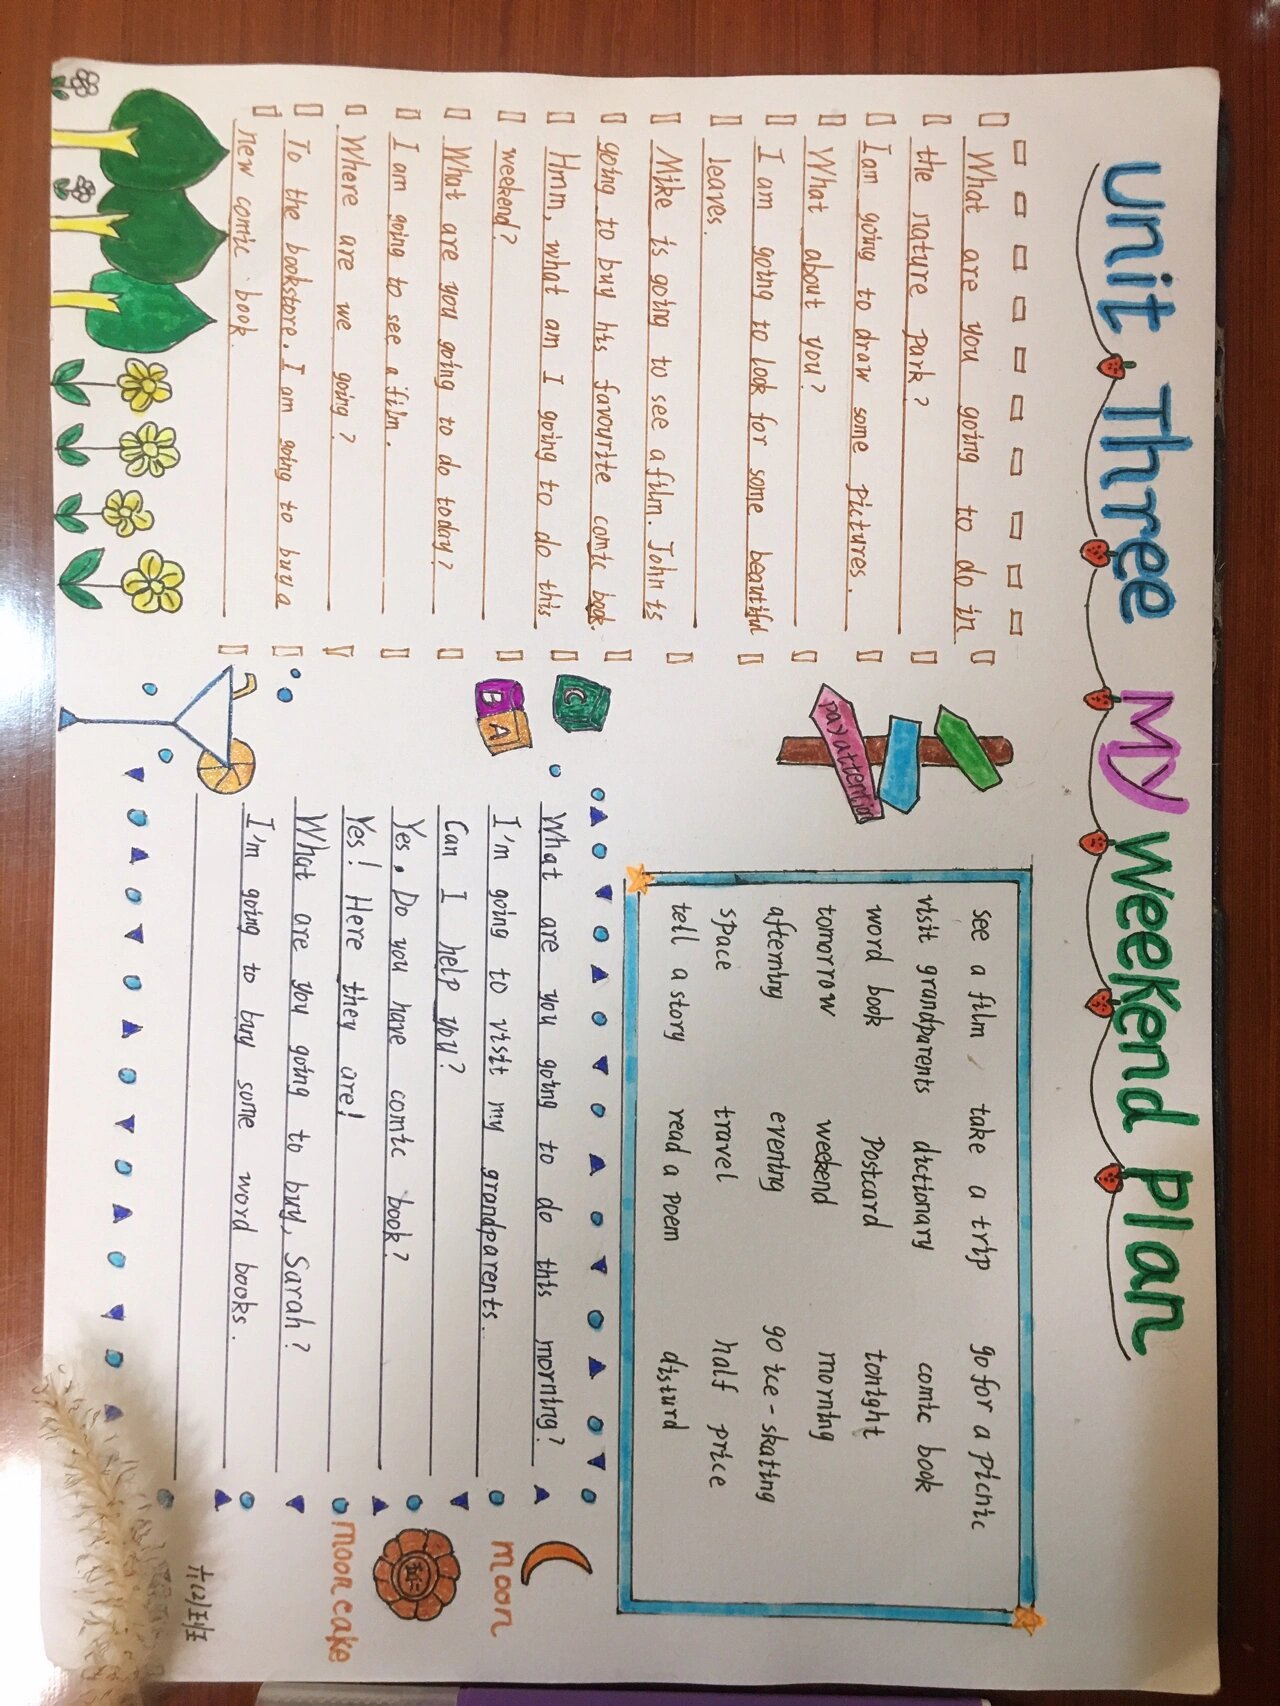 Unit Three My Weekend Plan
What are you going to do in
the nature park?
I am going to draw some pictures.
What about you?
I am going to look for some beautiful
leaves.
Mike is going to see a film. John is
going to buy his favourite comic book.
Hmm, what am I going to do this
weekend?
What are you going to do today?
I am going to see a film.
Where are we going?
To the bookstore. I am going to buy a
new comic book.
pay attention
see a film take a trip go for a picnic
visit grandparents dictionary comic book
word book postcard tonight
tomorrow weekend morning
afterning evening go ice-skating
space travel half price
tell a story read a poem disturd
C
B
A
What are you going to do this morning?
I'm going to visit my grandparents.
Can I help you?
Yes, Do you have comic book?
Yes! Here they are!
What are you going to buy, Sarah?
I'm going to buy some word books.
moon
mooncake